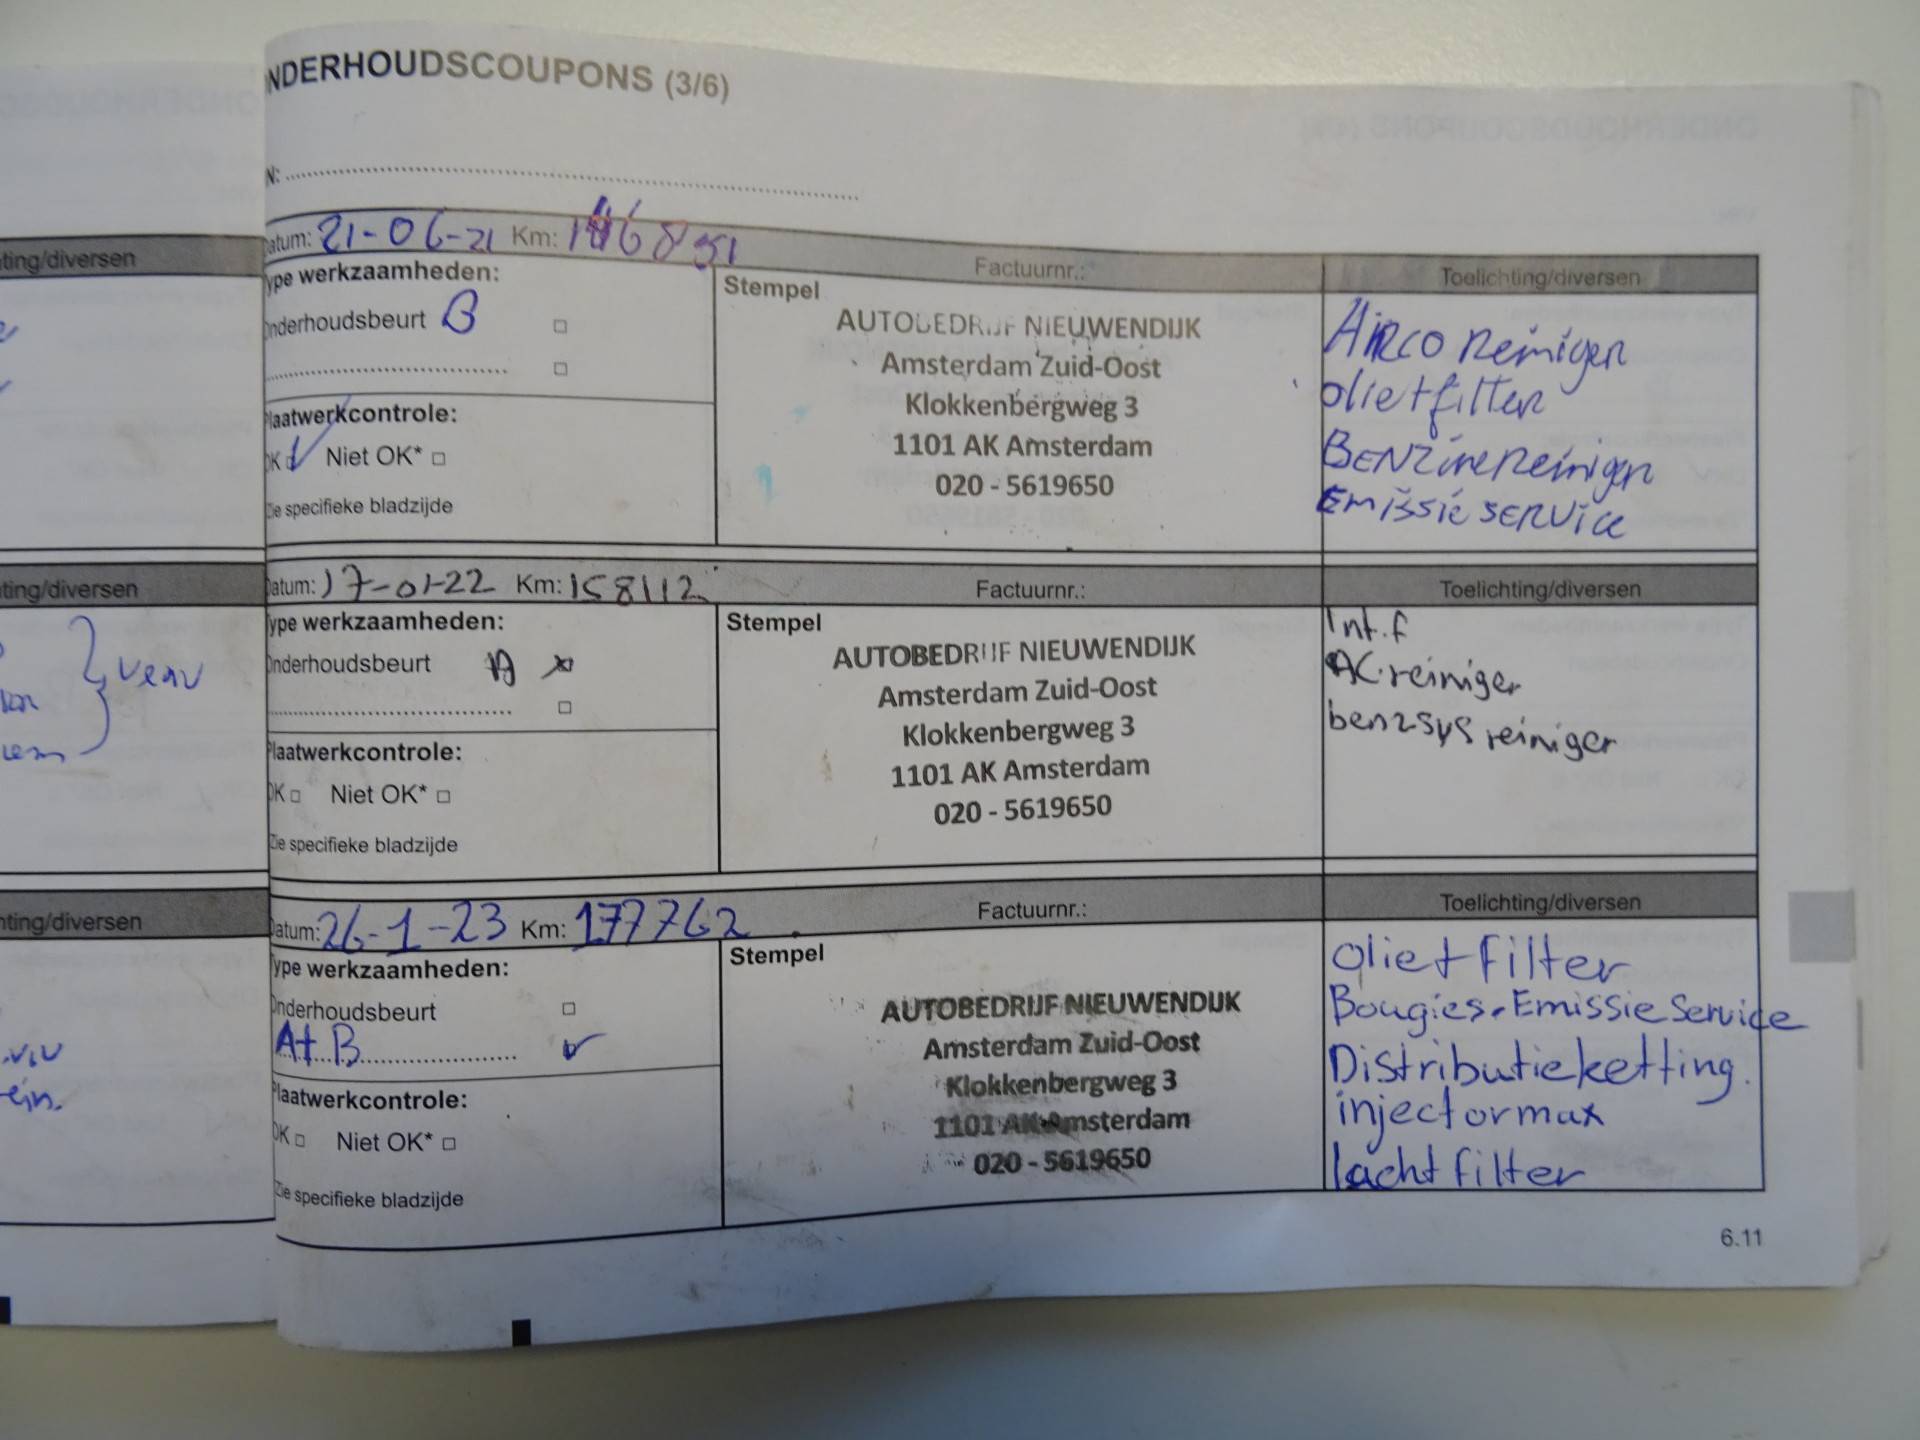 NDERHOUDSCOUPONS (3/6)
N:
atum: 21-06-21 Km:
Factuurnr.:
Toelichting/diversen
ype werkzaamheden:
nderhoudsbeurt B
Plaatwerkcontrole:
OK Niet OK*
Zie specifieke bladzijde
Stempel
AUTOBEDRIJF NIEUWENDIJK
Amsterdam Zuid-Oost
Klokkenbergweg 3
1101 AK Amsterdam
020 - 5619650
Airco Reiniger
olie+filter
BENZine Reiniger
Emissie SERVice
Datum: 17-01-22 Km: 158112
Factuurnr.:
Toelichting/diversen
Type werkzaamheden:
Onderhoudsbeurt
Plaatwerkcontrole:
OK Niet OK*
Zie specifieke bladzijde
Stempel
AUTOBEDRIJF NIEUWENDIJK
Amsterdam Zuid-Oost
Klokkenbergweg 3
1101 AK Amsterdam
020 - 5619650
Int.f
AC.reiniger
benzsys reiniger
Datum: 26-1-23 Km: 177762
Factuurnr.:
Toelichting/diversen
Type werkzaamheden:
Onderhoudsbeurt
A+B
Plaatwerkcontrole:
OK Niet OK*
Zie specifieke bladzijde
Stempel
AUTOBEDRIJF NIEUWENDIJK
Amsterdam Zuid-Oost
Klokkenbergweg 3
1101 AK Amsterdam
020 - 5619650
olie+filter
Bougies.Emissie Service
Distributieketting.
injectormax
lacht filter
6.11
ting/diversen
ting/diversen
ting/diversen